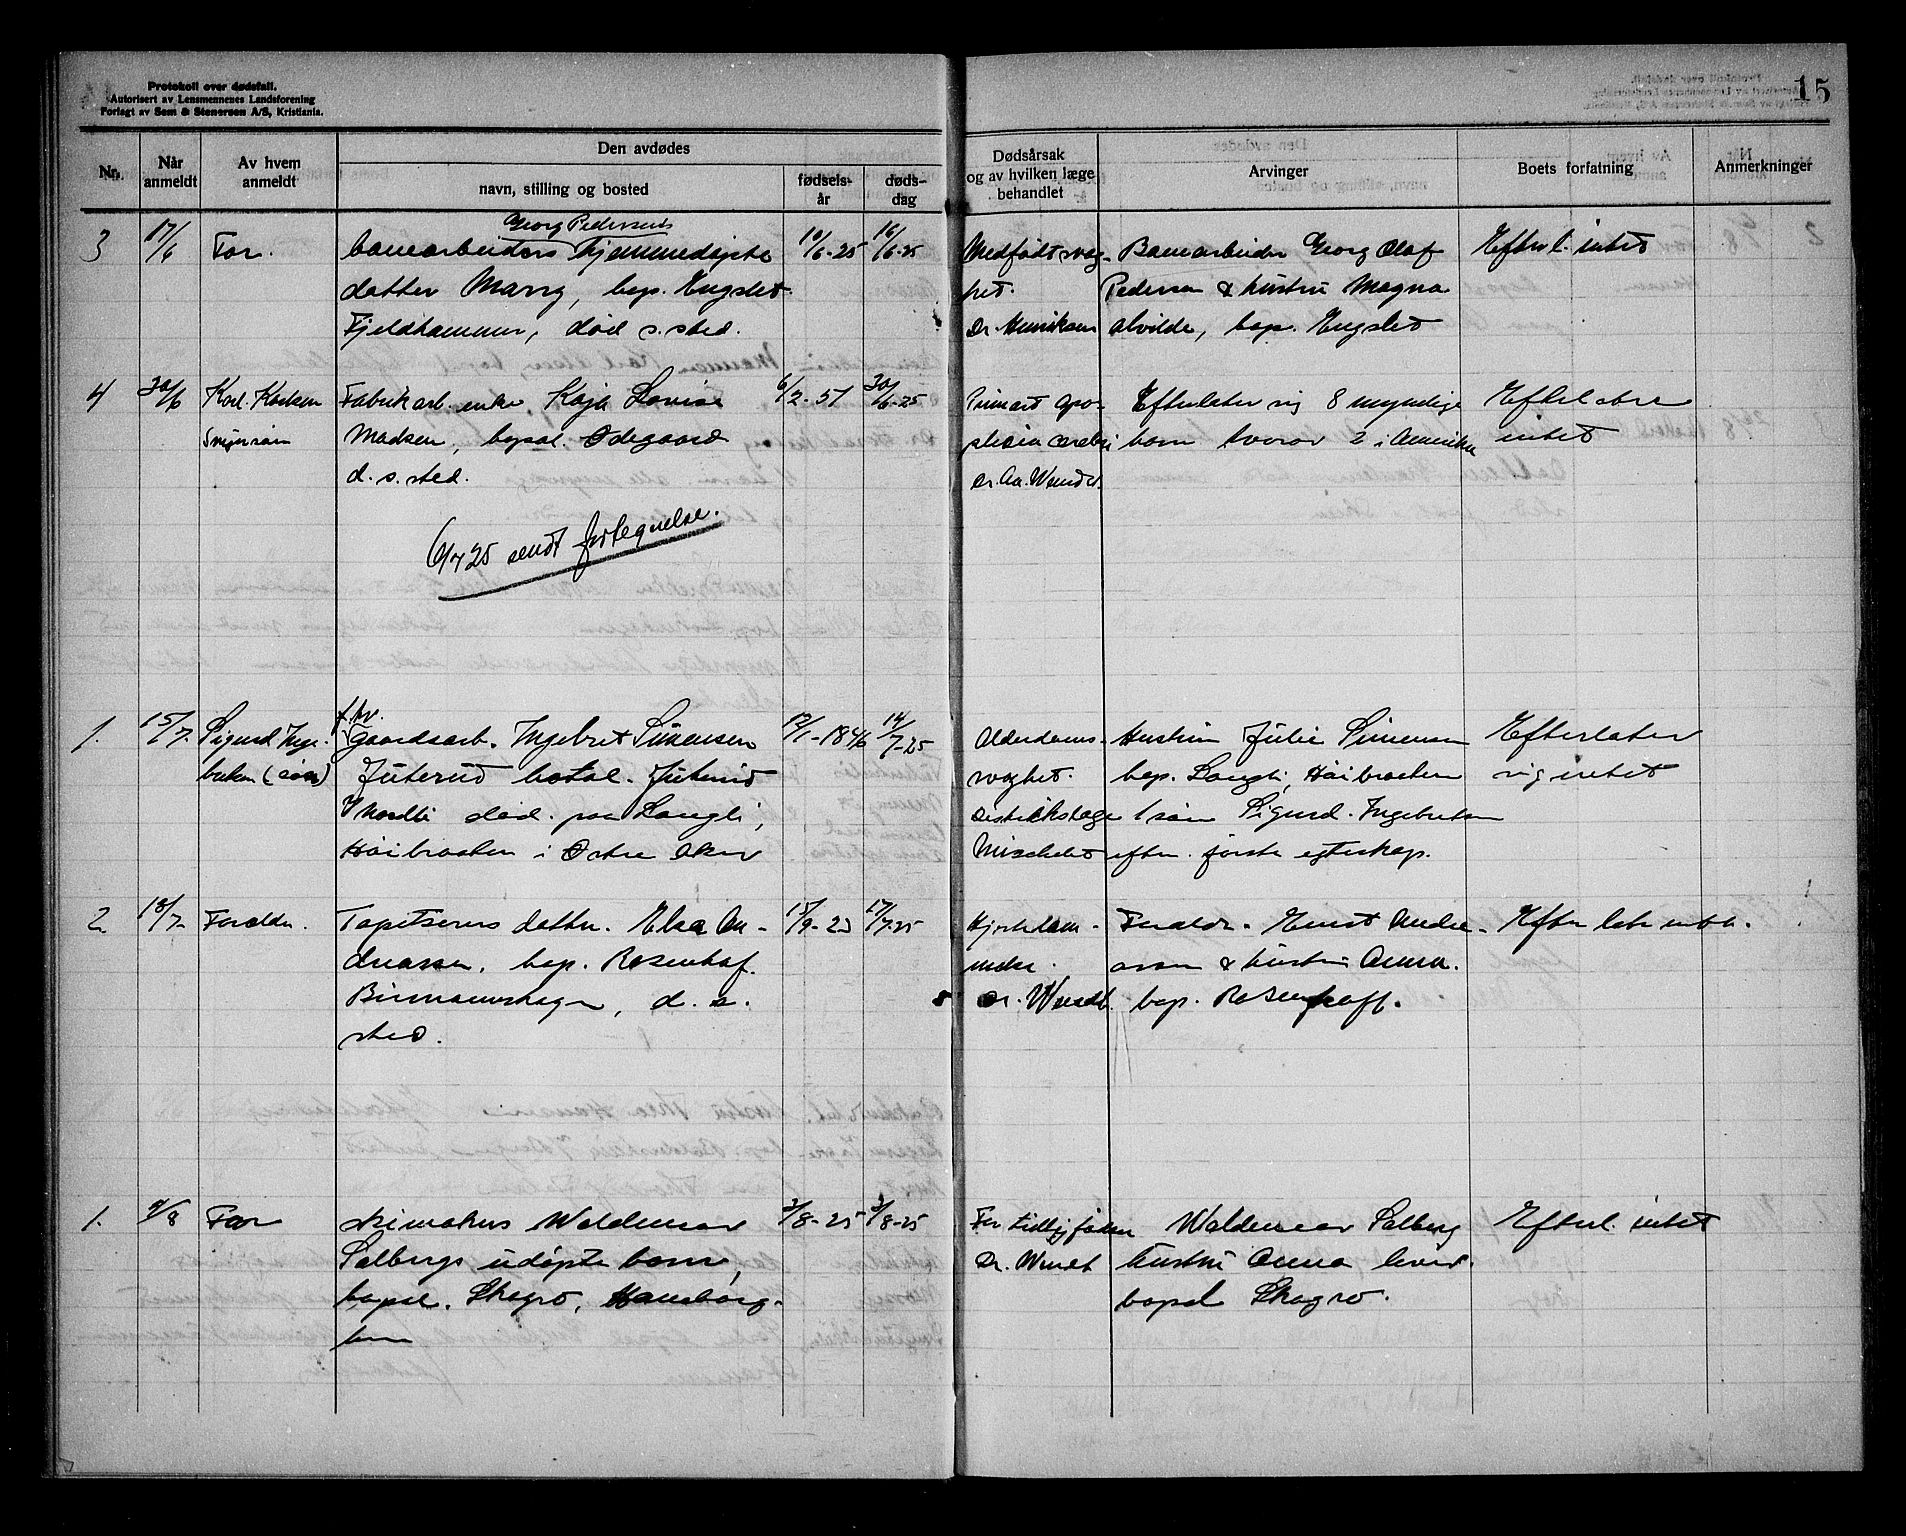 Protokoll over dødsfall.
Autorisert av Lensmennenes Landsforening
Forlagt av Sem & Stenersen A/S, Kristiania.
15
Nr.
Når anmeldt
Av hvem anmeldt
Den avdødes
navn, stilling og bosted
fødselsår
dødsdag
Dødsårsak og av hvilken læge behandlet
Arvinger
Boets forfatning
Anmerkninger
3 17/6 Far.
Georg Pedersens
banearbeiders hjemmedøpte
datter Marry, bop. Engslet
Fjeldhammer, død s. sted.
10/6-25 16/6-25
Medfødt svag-
het.
Dr. Henriksen
Banearbeider Georg Olaf
Pedersen & hustru Magna
Alvilde, bop. Engslet
Efterl. intet
4 30/6 Karl Karlsen
Svigersøn
Fabrikarb. enke, Kaja Lovise
Madsen, bopæl. Ødegaard
d. s. sted.
6/2-51 30/6-25
Primært apo-
plexia cerebri
Dr. Aa. Wendt.
Efterlater sig 8 myndige
barn hvorav 2 i Amerika
Efterlatere
intet
6/7 25 sendt fortegnelse.
1. 15/7. Sigurd Inge-
bretsen (søn)
f.hv.
Gaardsarb. Ingebret Simensen
Juterud bopæl. Juterud
død. paa Langli,
Høibraaten i Østre Aker
12/1-1846 14/7-25
Alderdoms-
svaghet.
Distriktslæge
Michelet
Hustru Julie Simensen
bop. Langli, Høibraaten
1 søn Sigurd. Ingebretsen
efter. første egteskap.
Efterlater
sig intet
2. 18/7- Foreldr.
Tapetserers datter. Elsa An-
dreassen, bop. Rosenhof.
d. s.
sted.
15/9-23 17/7-25
Hjertelam-
melse.
Dr. Wendt.
Foreldr. Ernst Andre-
asen & hustru Anna.
bop. Rosenhoff.
Efterlater intet.
1. 9/8 Far
Waldemar
Salbergs udøpte barn,
bopæl. Skogro, Hanaborg-
3/8-25 3/8-25
For tidlig født
Dr. Wendt
Waldemar Salberg
hustru Anna
bopæl Skogro.
Efterl. intet